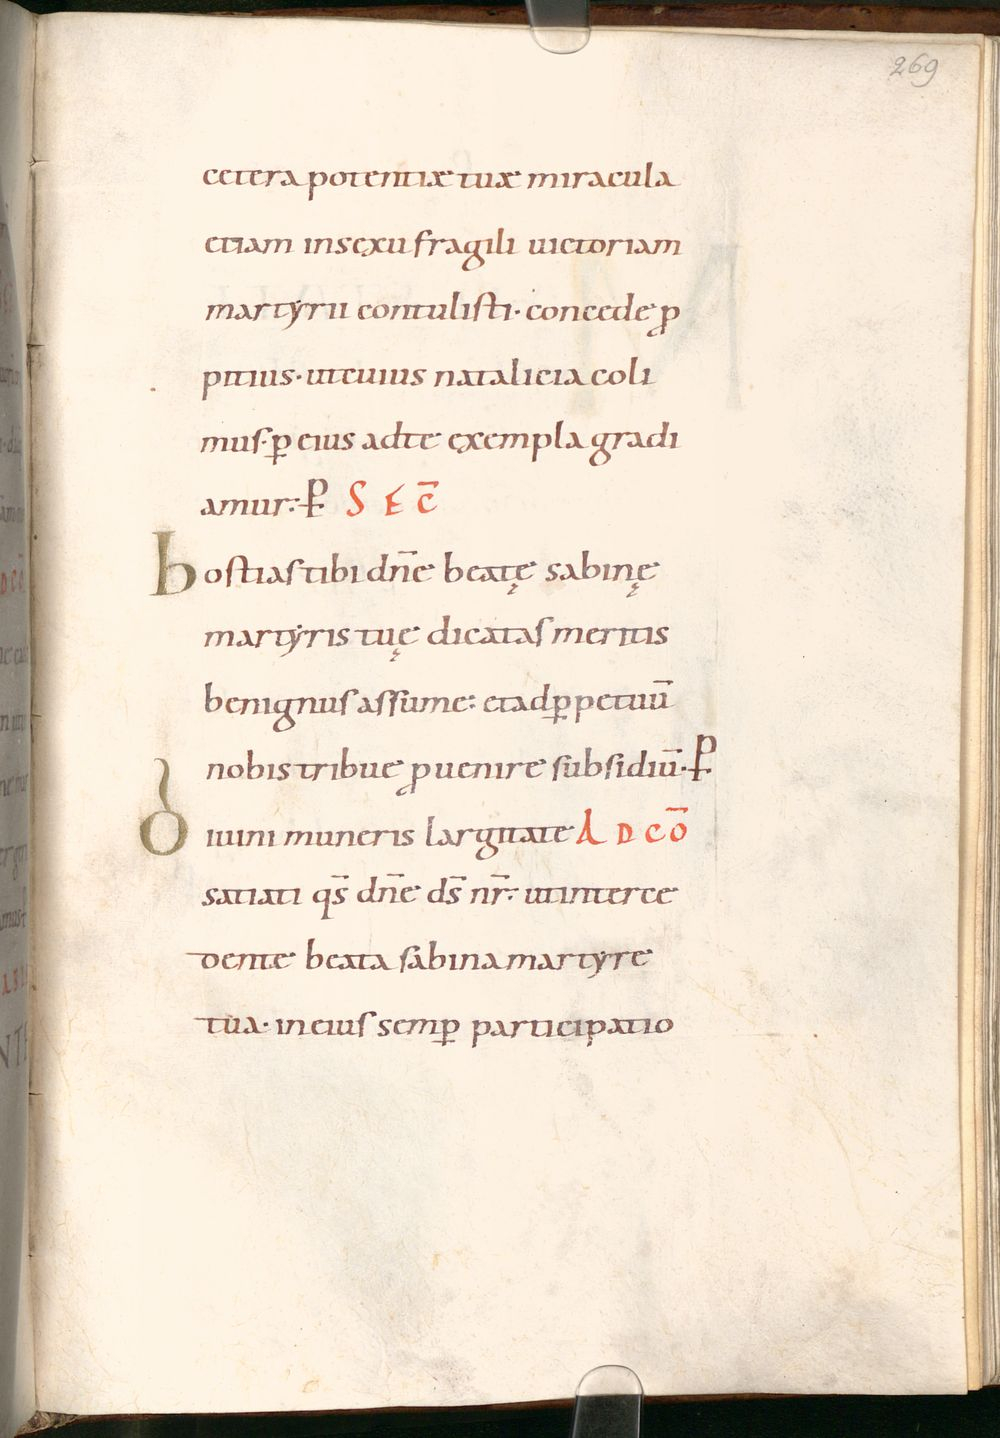 269
cetera potentiæ tuæ miracula
etiam in sexu fragili uictoriam
martyrii contulisti· concede ꝓ
pitius· ut cuius natalicia coli
mus· ꝑ eius ad te exempla gradi
amur: P̵ S E C̄
hostias tibi dn̄e beatę sabinę
martyris tuę dicatas meritis
benignus assume: et ad ꝑpetuū
nobis tribue ꝓuenire subsidiū· P̵
Diuini muneris largitate A D C Ō
satiati qs̄ dn̄e ds̄ nr̄: ut interce
dente beata sabina martyre
tua· in eius semꝑ participatio